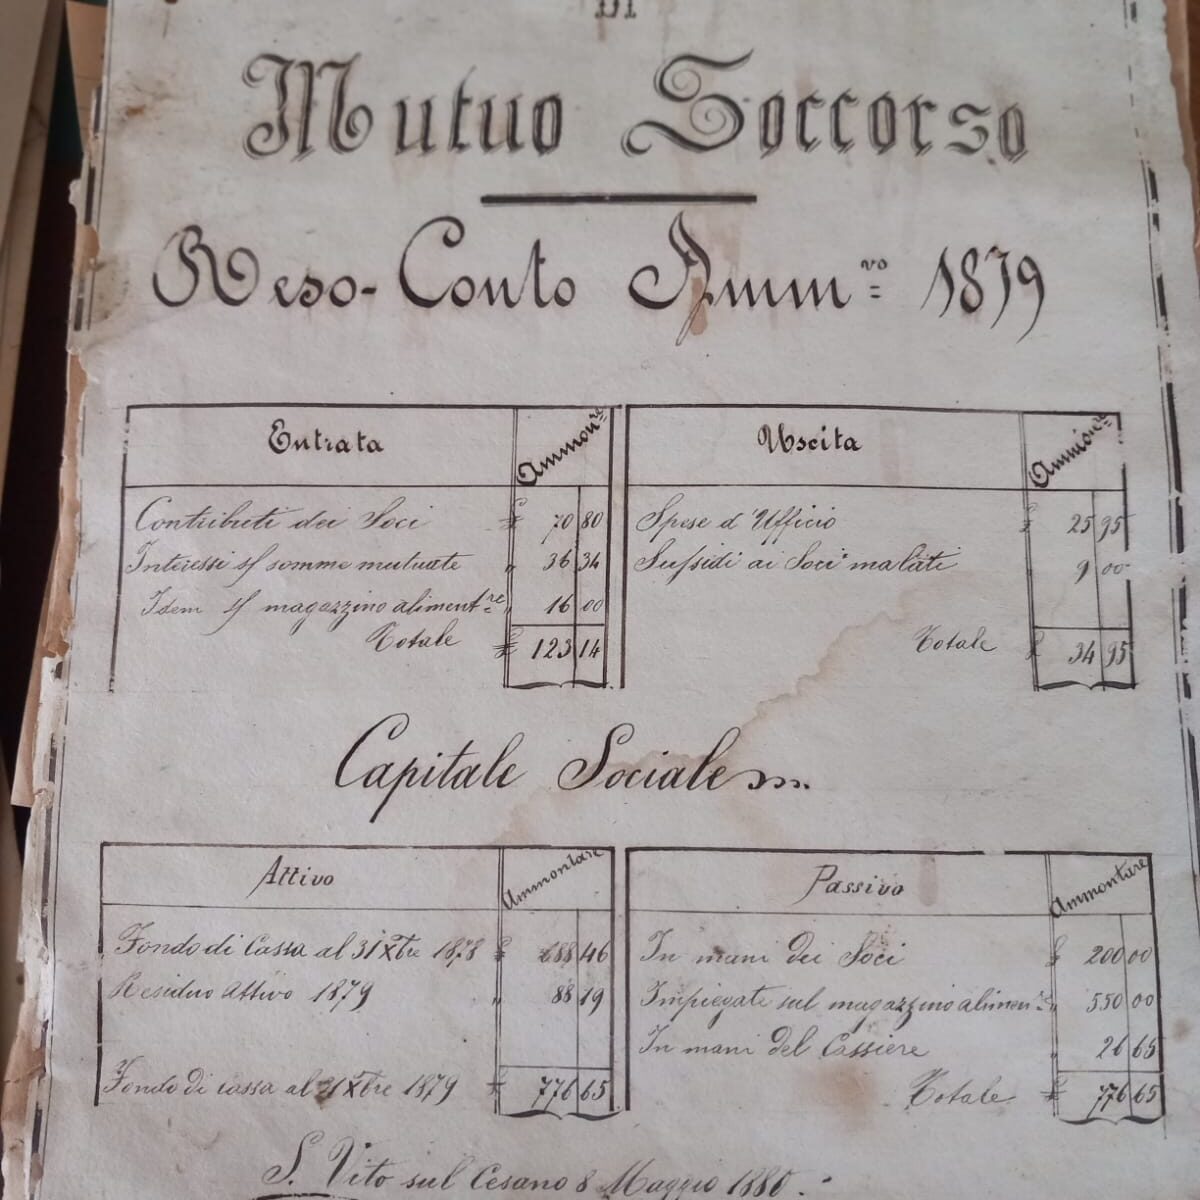 DI
Mutuo Soccorso
Reso-Conto Amm.vo 1879
Entrata Ammon.re Uscita Ammon.re
Contributi dei Soci £ 70 80 Spese d'Ufficio £ 25 95
Interessi sf somme mutuate " 36 34 Sussidi ai Soci malati " 9 00
Idem sf magazzino aliment.re " 16 00
Totale £ 123 14 Totale £ 34 95
Capitale Sociale
Attivo Ammontare Passivo Ammontare
Fondo di Cassa al 31 Xbre 1878 £ 688 46 In mani dei Soci £ 200 00
Residuo Attivo 1879 " 88 19 Impiegati sul magazzino alimen.re " 550 00
In mani del Cassiere " 26 65
Fondo di cassa al 31 Xbre 1879 £ 776 65 Totale £ 776 65
S. Vito sul Cesano 8 Maggio 1880.